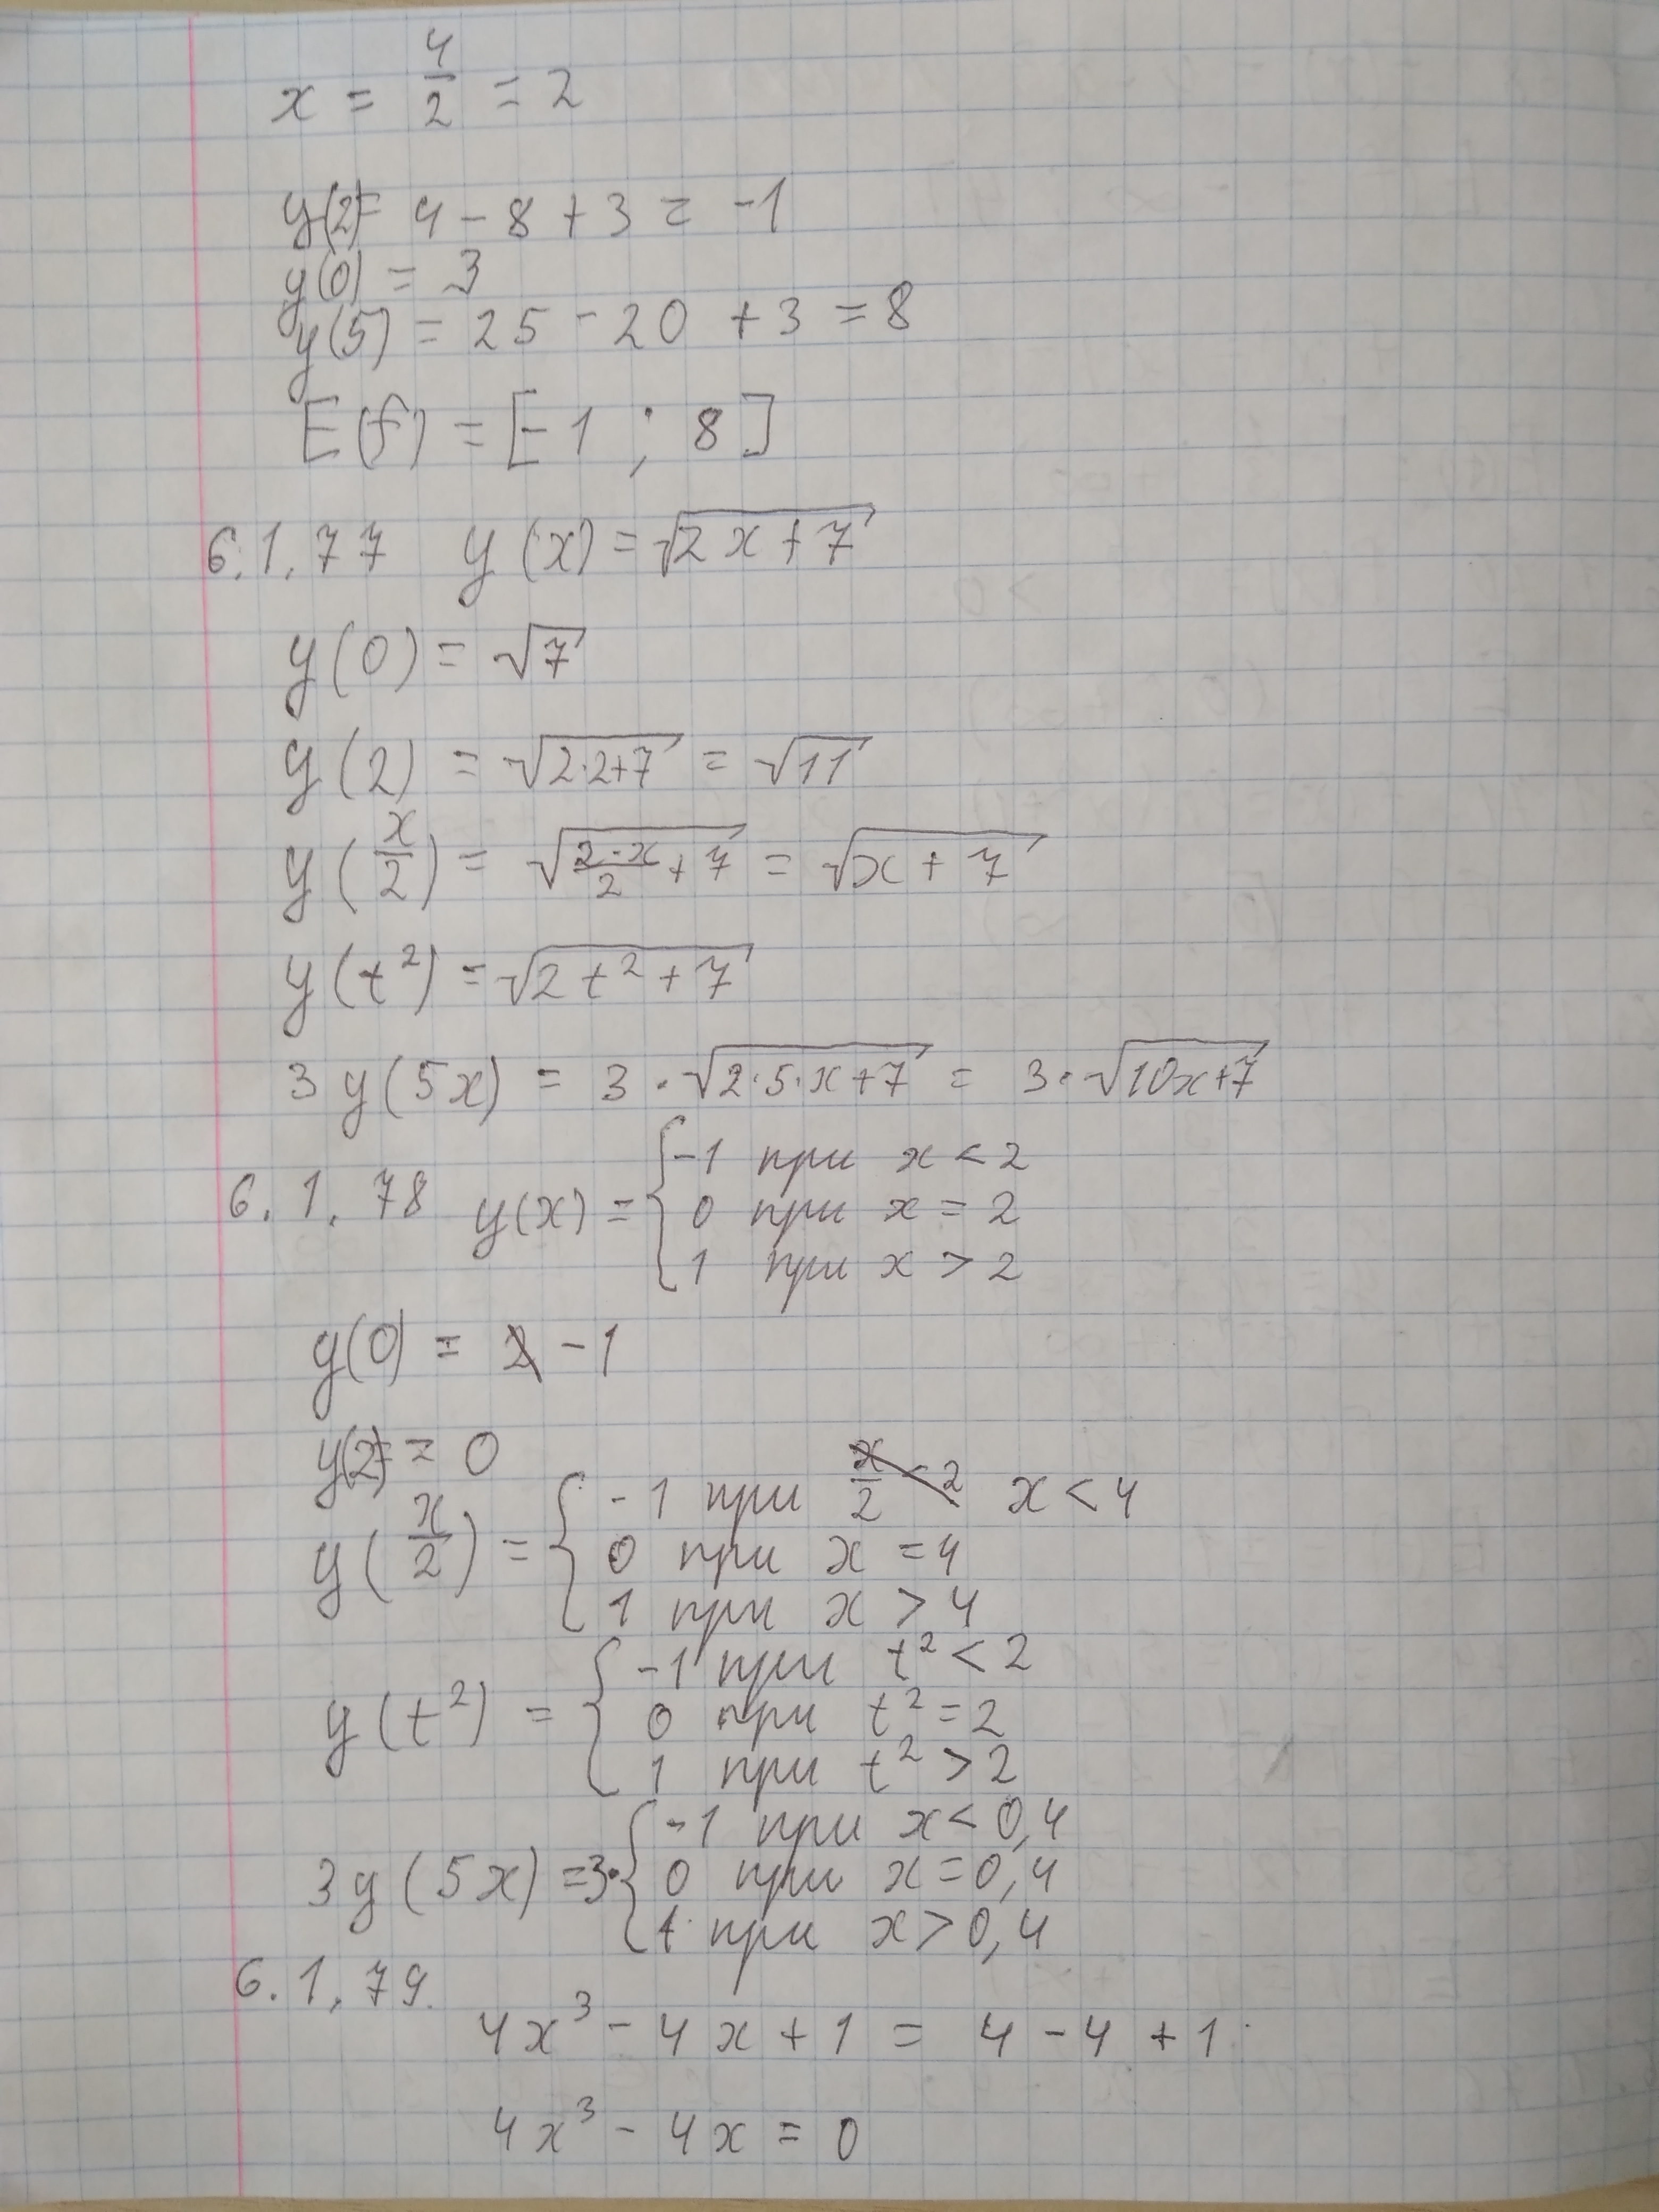 x = 4/2 = 2
y(2) = 4 - 8 + 3 = -1
y(0) = 3
y(5) = 25 - 20 + 3 = 8
E(f) = [-1 ; 8]
6.1.77 y(x) = √(2x + 7)
y(0) = √7
y(2) = √(2·2+7) = √11
y(x/2) = √(2·x/2 + 7) = √(x + 7)
y(t²) = √(2t² + 7)
3y(5x) = 3·√(2·5·x+7) = 3·√(10x+7)
-1 при x < 2
6.1.78 y(x) = { 0 при x = 2
1 при x > 2
y(0) = -1
y(2) = = 0
-1 при x/2 < 2 x < 4
y(x/2) = { 0 при x = 4
1 при x > 4
-1 при t² < 2
y(t²) = { 0 при t² = 2
1 при t² > 2
-1 при x < 0,4
3y(5x) = 3·{ 0 при x = 0,4
1 при x > 0,4
6.1.79.
4x³ - 4x + 1 = 4 - 4 + 1
4x³ - 4x = 0